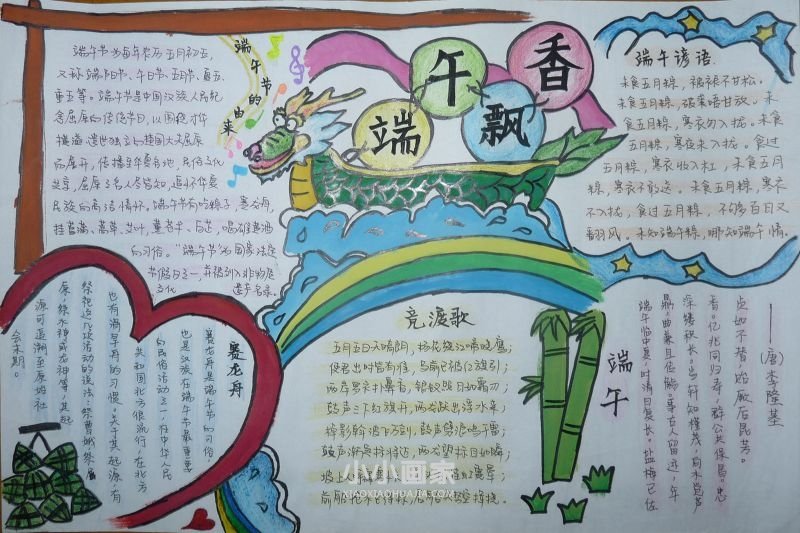 端午香飘
端午节的由来
端午节为每年农历五月初五,
又称端阳节、午日节、五月节、
重五等。端午节是中国汉族人民纪
念屈原的传统节日,以围绕才华
横溢、遗世独立的楚国大夫屈原
而展开,传播至华夏各地,民俗文化
共享,屈原之名人尽皆知,追怀华夏
民族的高洁情怀。端午节有吃粽子,赛龙舟,
挂菖蒲、蒿草、艾叶,薰苍术、白芷,喝雄黄酒
的习俗。“端午节”为国家法定
节假日之一,并被列入
文化遗产名录。
端午谚语
未食五月粽,被褥不甘松。
未食五月粽,破裘唔甘放。未
食五月粽,寒衣勿入拢。未食
五月粽,寒衣未入拢。食过
五月粽,寒衣收入杠,未食五月
粽,寒衣不敢送。未食五月粽,寒衣
不入拢,食过五月粽,不够百日又
翻风。未知端午粽,哪知端午情。
赛龙舟
赛龙舟是端午节的习俗
也是汉族在端午节最重要
的民俗活动之一,在中华人民
共和国北方很流行,在北方
也有划旱舟的习惯。关于其起源,有
祭祀这几次活动的说法:祭曹娥,祭屈
原,祭水神或龙神等,其起
源可追溯至原始社
会末期。
竞渡歌
五月五日天晴朗,杨花绕江啼晓莺;
使君出时皆有准,马前已被红旗引;
两岸罗衣扑鼻香,银钗照日如霜刃;
鼓声三下红旗开,两龙跃出浮水来;
棹影斡波飞万剑,鼓声劈浪鸣千雷;
鼓声渐急标将近,两龙望标目如瞬;
坡上人
前船抢水已得标,后船失势空挥桡。
端午
——(唐)李隆基
端午临中夏,时清日复长。盐梅已佐
鼎,曲糵且传觞。事古人留迹,年
深缕积长。当轩知槿茂,向水觉芦
香。亿兆同归寿,群公共保昌。忠
贞如不替,贻厥后昆芳。
小小画家
XIAOXIAOHUAJIA.COM